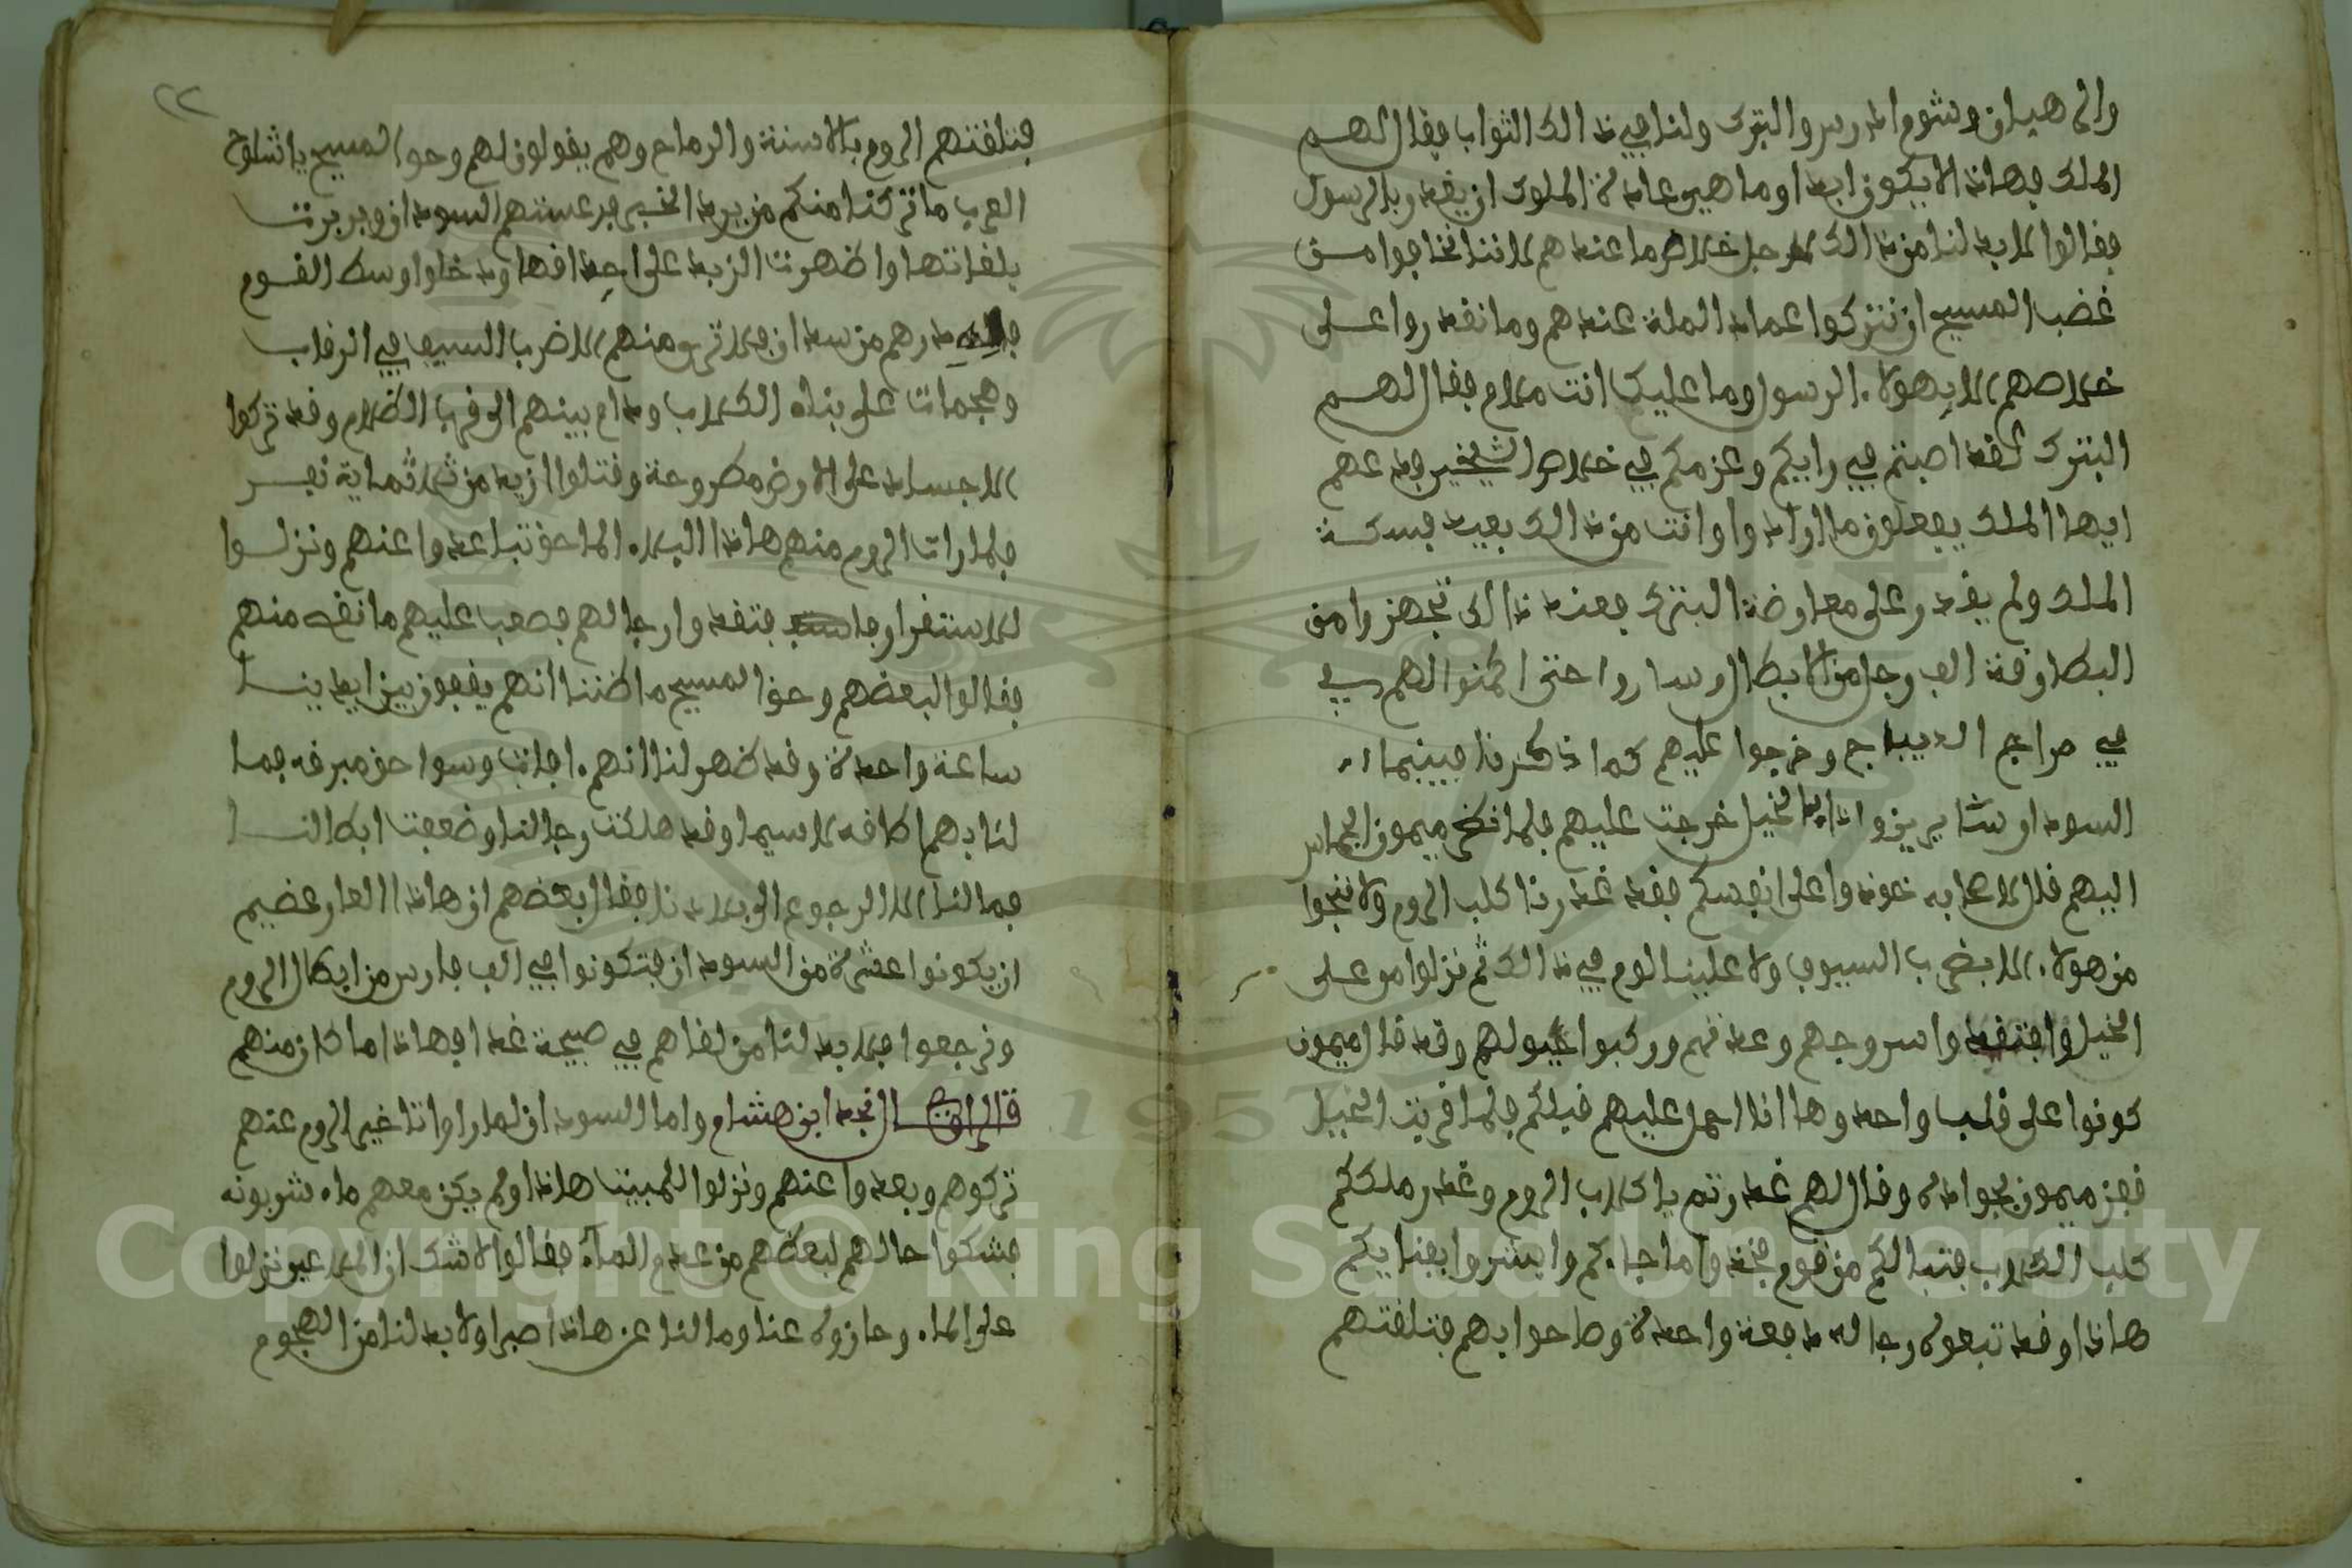 والى هيلان وشوم المدرس والبترك ولنا في ذالك الثواب فقال لهم
الملك فهاذا لا يكون ابدا وما هي عادة الملوك ان يغدروا بالرسول
فقالوا لا بد لنا من ذالك لاجل خلاص ما عندهم لاننا نخافوا من
غضب المسيح ان نتركوا عماد الملة عندهم وما نقدروا على
خلاصهم الا بهولاء الرسول وما عليك انت ملام فقال لهم
البترك لقد اصبتم في رايكم وعزمكم في خلاص الشيخين فدعهم
ايها الملك يفعلون ما ارادوا وانت من ذالك بعيد فسكت
الملك ولم يقدر على معارضة البترك فعند ذالك تجهزوا من
البطارقة الف رجل من الابطال وساروا حتى اكمنوا لهم في
في مراج الديباج وخرجوا عليهم كما ذكرنا فبينما
السودان سايرين واذا بالخيل خرجت عليهم فلما نظر ميمون الجماس
اليهم قال لاصحابه خوذوا على انفسكم فقد غدرنا كلب الروم ولا ننجوا
من هولاء الا بضرب السيوف ولا علينا لوم في ذالك ثم نزلوا من على
الخيل وافتقدوا سروجهم وعدتهم وركبوا خيولهم وقد قال ميمون
كونوا على قلب واحد وها انا احمل عليهم قبلكم فلما قربت الخيل
قفز ميمون بجواده وقال لهم غدرتم يا كلاب الروم وغدر ملككم
كلب الكلاب فتبا لكم من قوم فخذوا ما جاءكم وابشروا بفنايكم
هاذا وقد تبعوه رجاله دفعة واحدة وصاحوا بهم فتلقتهم
فتلقتهم الروم بالاسنة والرماح وهم يقولون لهم وحق المسيح يا
العرب ما تركنا منكم من يرد الخبر فدعستهم السودان وبربرت
بلغاتها واظهرت الزبد على اجدافها ودخلوا وسط القوم
درهم من سدان فلا ترى منهم الا ضرب السيف في الرقاب
وهجمات على بناه الكلاب ودام بينهم الى قرب الظلام وقد تركوا
الاجساد على الارض مطروحة وقتلوا ازيد من ثلاثماية نفر
فلما رات الروم منهم هاذا البلاء الماحق تباعدوا عنهم ونزلوا
للاستقرار فتفقدوا رجالهم فصعب عليهم ما نقص منهم
فقالوا لبعضهم وحق المسيح ما ظننا انهم يقفون بين ايدينا
ساعة واحدة وقد ظهر لنا انهم افات وسواحق مبرقه فما
لنا بهم طاقه لاسيما وقد هلكت رجالنا وضعفت ابطالنا
فما لنا الا الرجوع الى بلادنا فقال بعضهم ان هاذا العار عضيم
ان يكونوا عشرة من السودان فتكونوا في الف فارس من ابطال الروم
ونرجعوا فلا بد لنا من لقاهم في صبيحة غد فهاذا ما كان منهم
قال الراوي قال نجد ابن هشام واما السودان لما راوا تاخير الروم عنهم
تركوهم وبعدوا عنهم ونزلوا للمبيت هاذا ولم يكن معهم ماء شربونه
فشكوا حالهم لبعضهم من عدم الماء فقالوا لا شك ان الملاعين نزلوا
على الماء وحازوه عنا وما لنا عن هاذا صبرا ولا بد لنا من الهجوم
٢٢
Copyright © King Saud University
1957